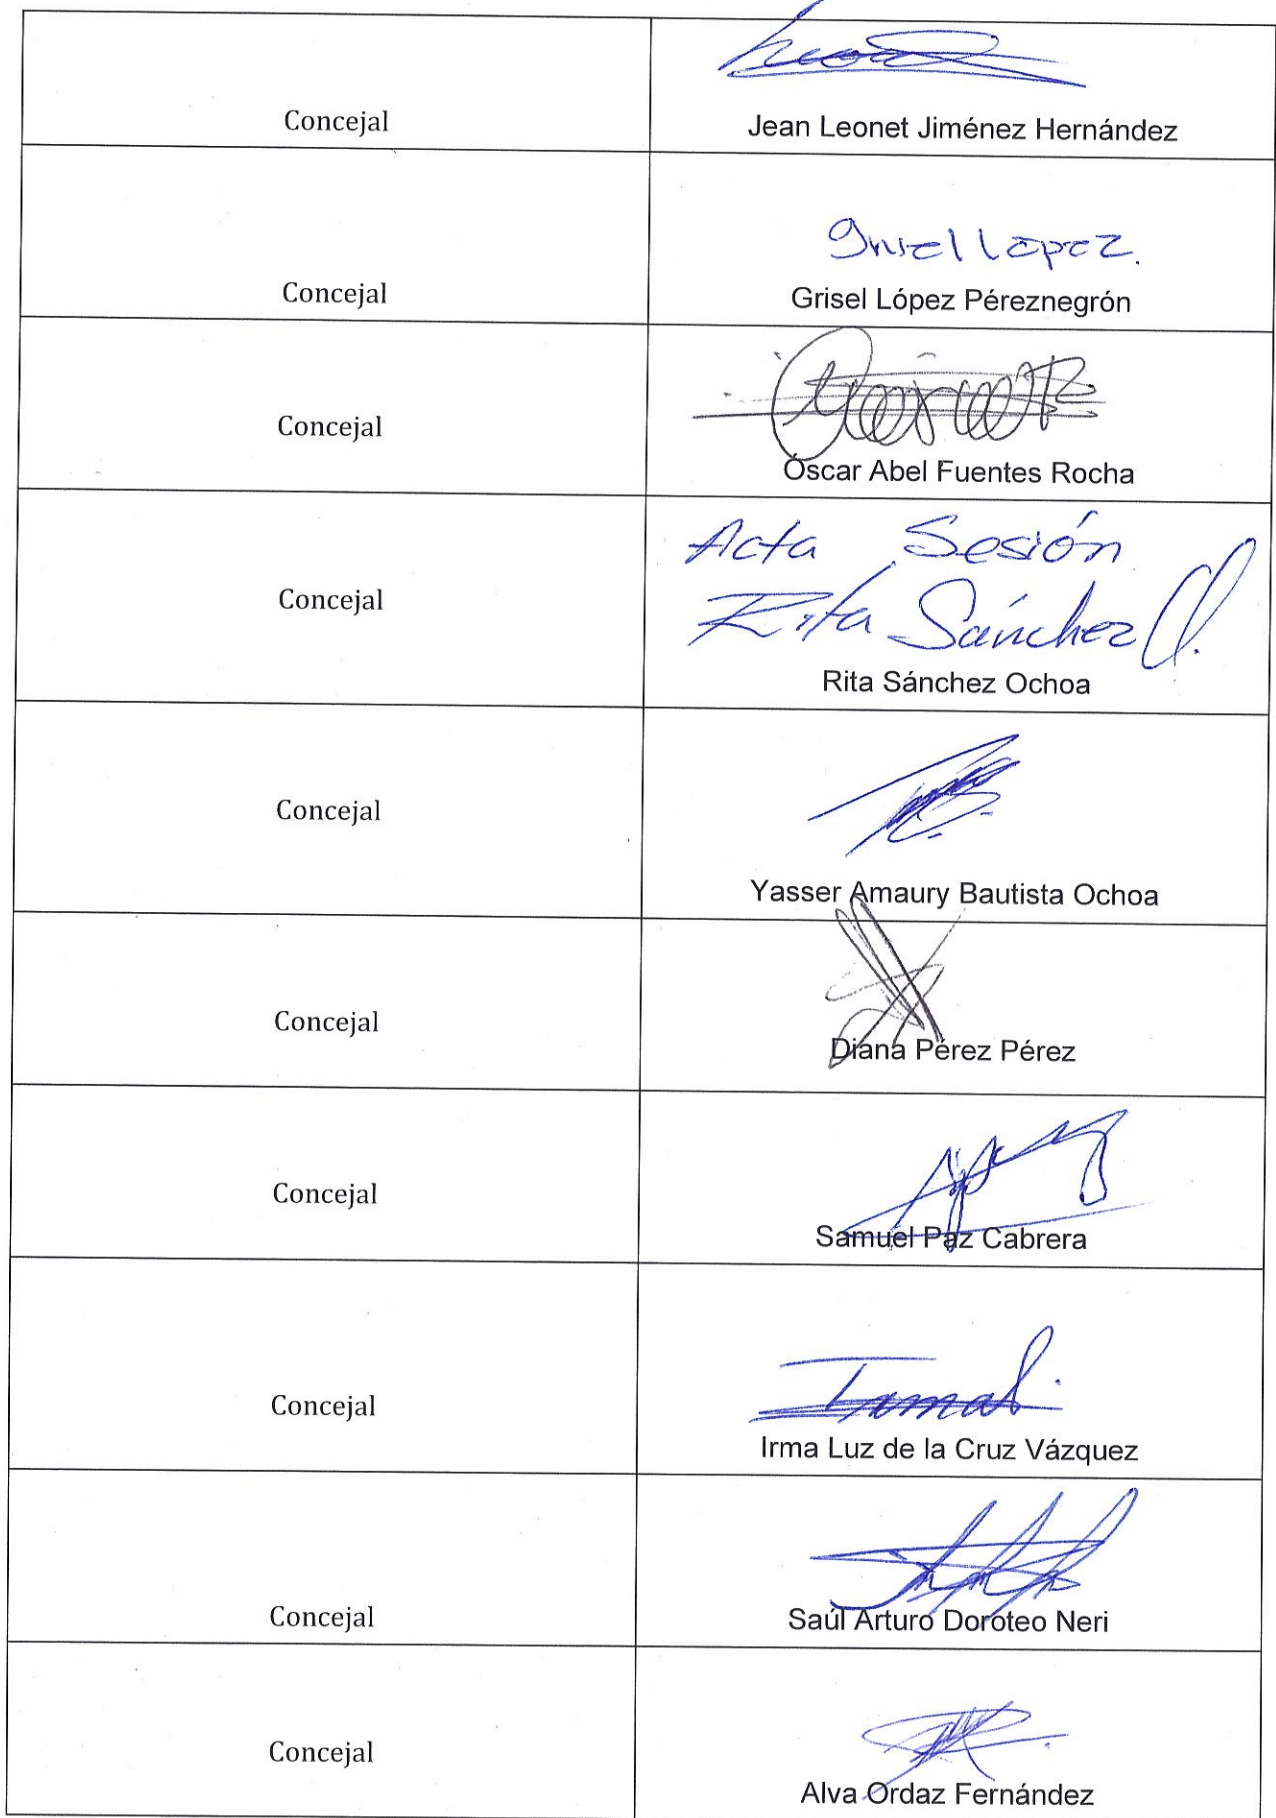 Concejal
Jean Leonet Jiménez Hernández
Grisel López.
Concejal
Grisel López Péreznegrón
Concejal
Óscar Abel Fuentes Rocha
Acta Sesión
Rita Sánchez O.
Concejal
Rita Sánchez Ochoa
Concejal
Yasser Amaury Bautista Ochoa
Concejal
Diana Pérez Pérez
Concejal
Samuel Paz Cabrera
Concejal
Irma Luz de la Cruz Vázquez
Concejal
Saúl Arturo Doroteo Neri
Concejal
Alva Ordaz Fernández